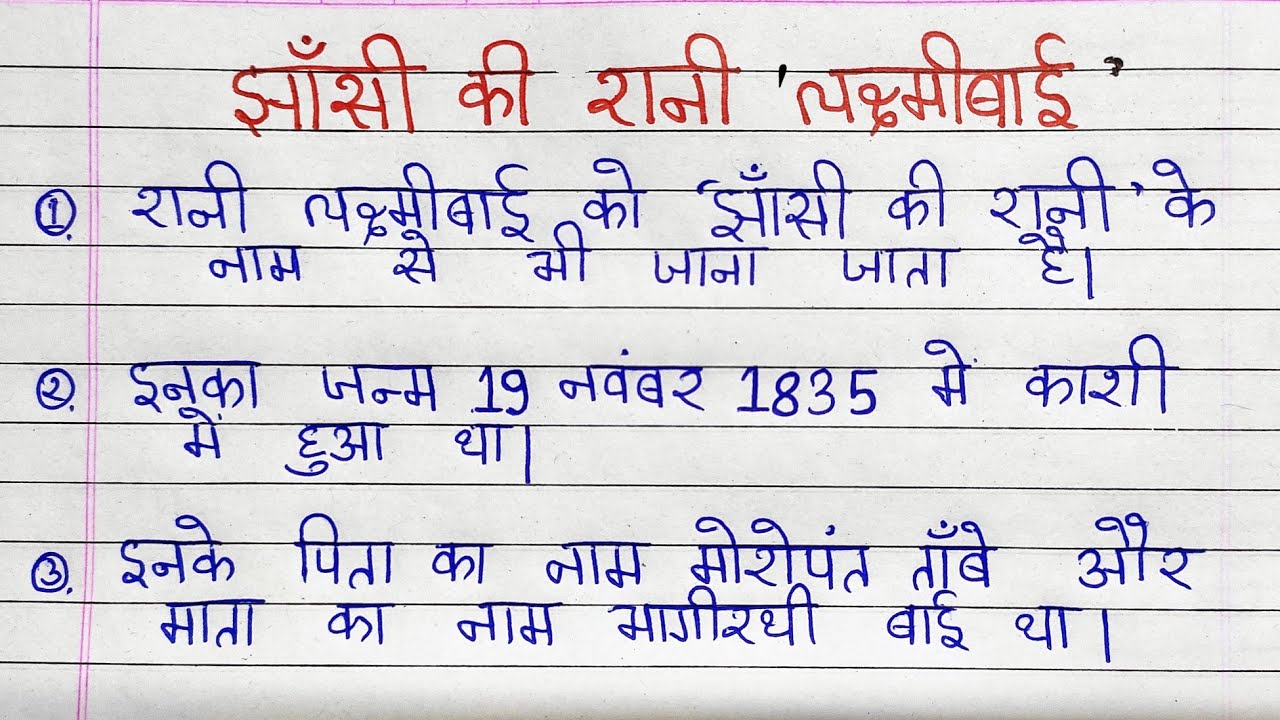 झाँसी की रानी 'लक्ष्मीबाई'
①. रानी लक्ष्मीबाई को 'झाँसी की रानी' के
नाम से भी जाना जाता है।
②. इनका जन्म 19 नवंबर 1835 में काशी
में हुआ था।
③. इनके पिता का नाम मोरोपंत ताँबे और
माता का नाम भागीरथी बाई था।